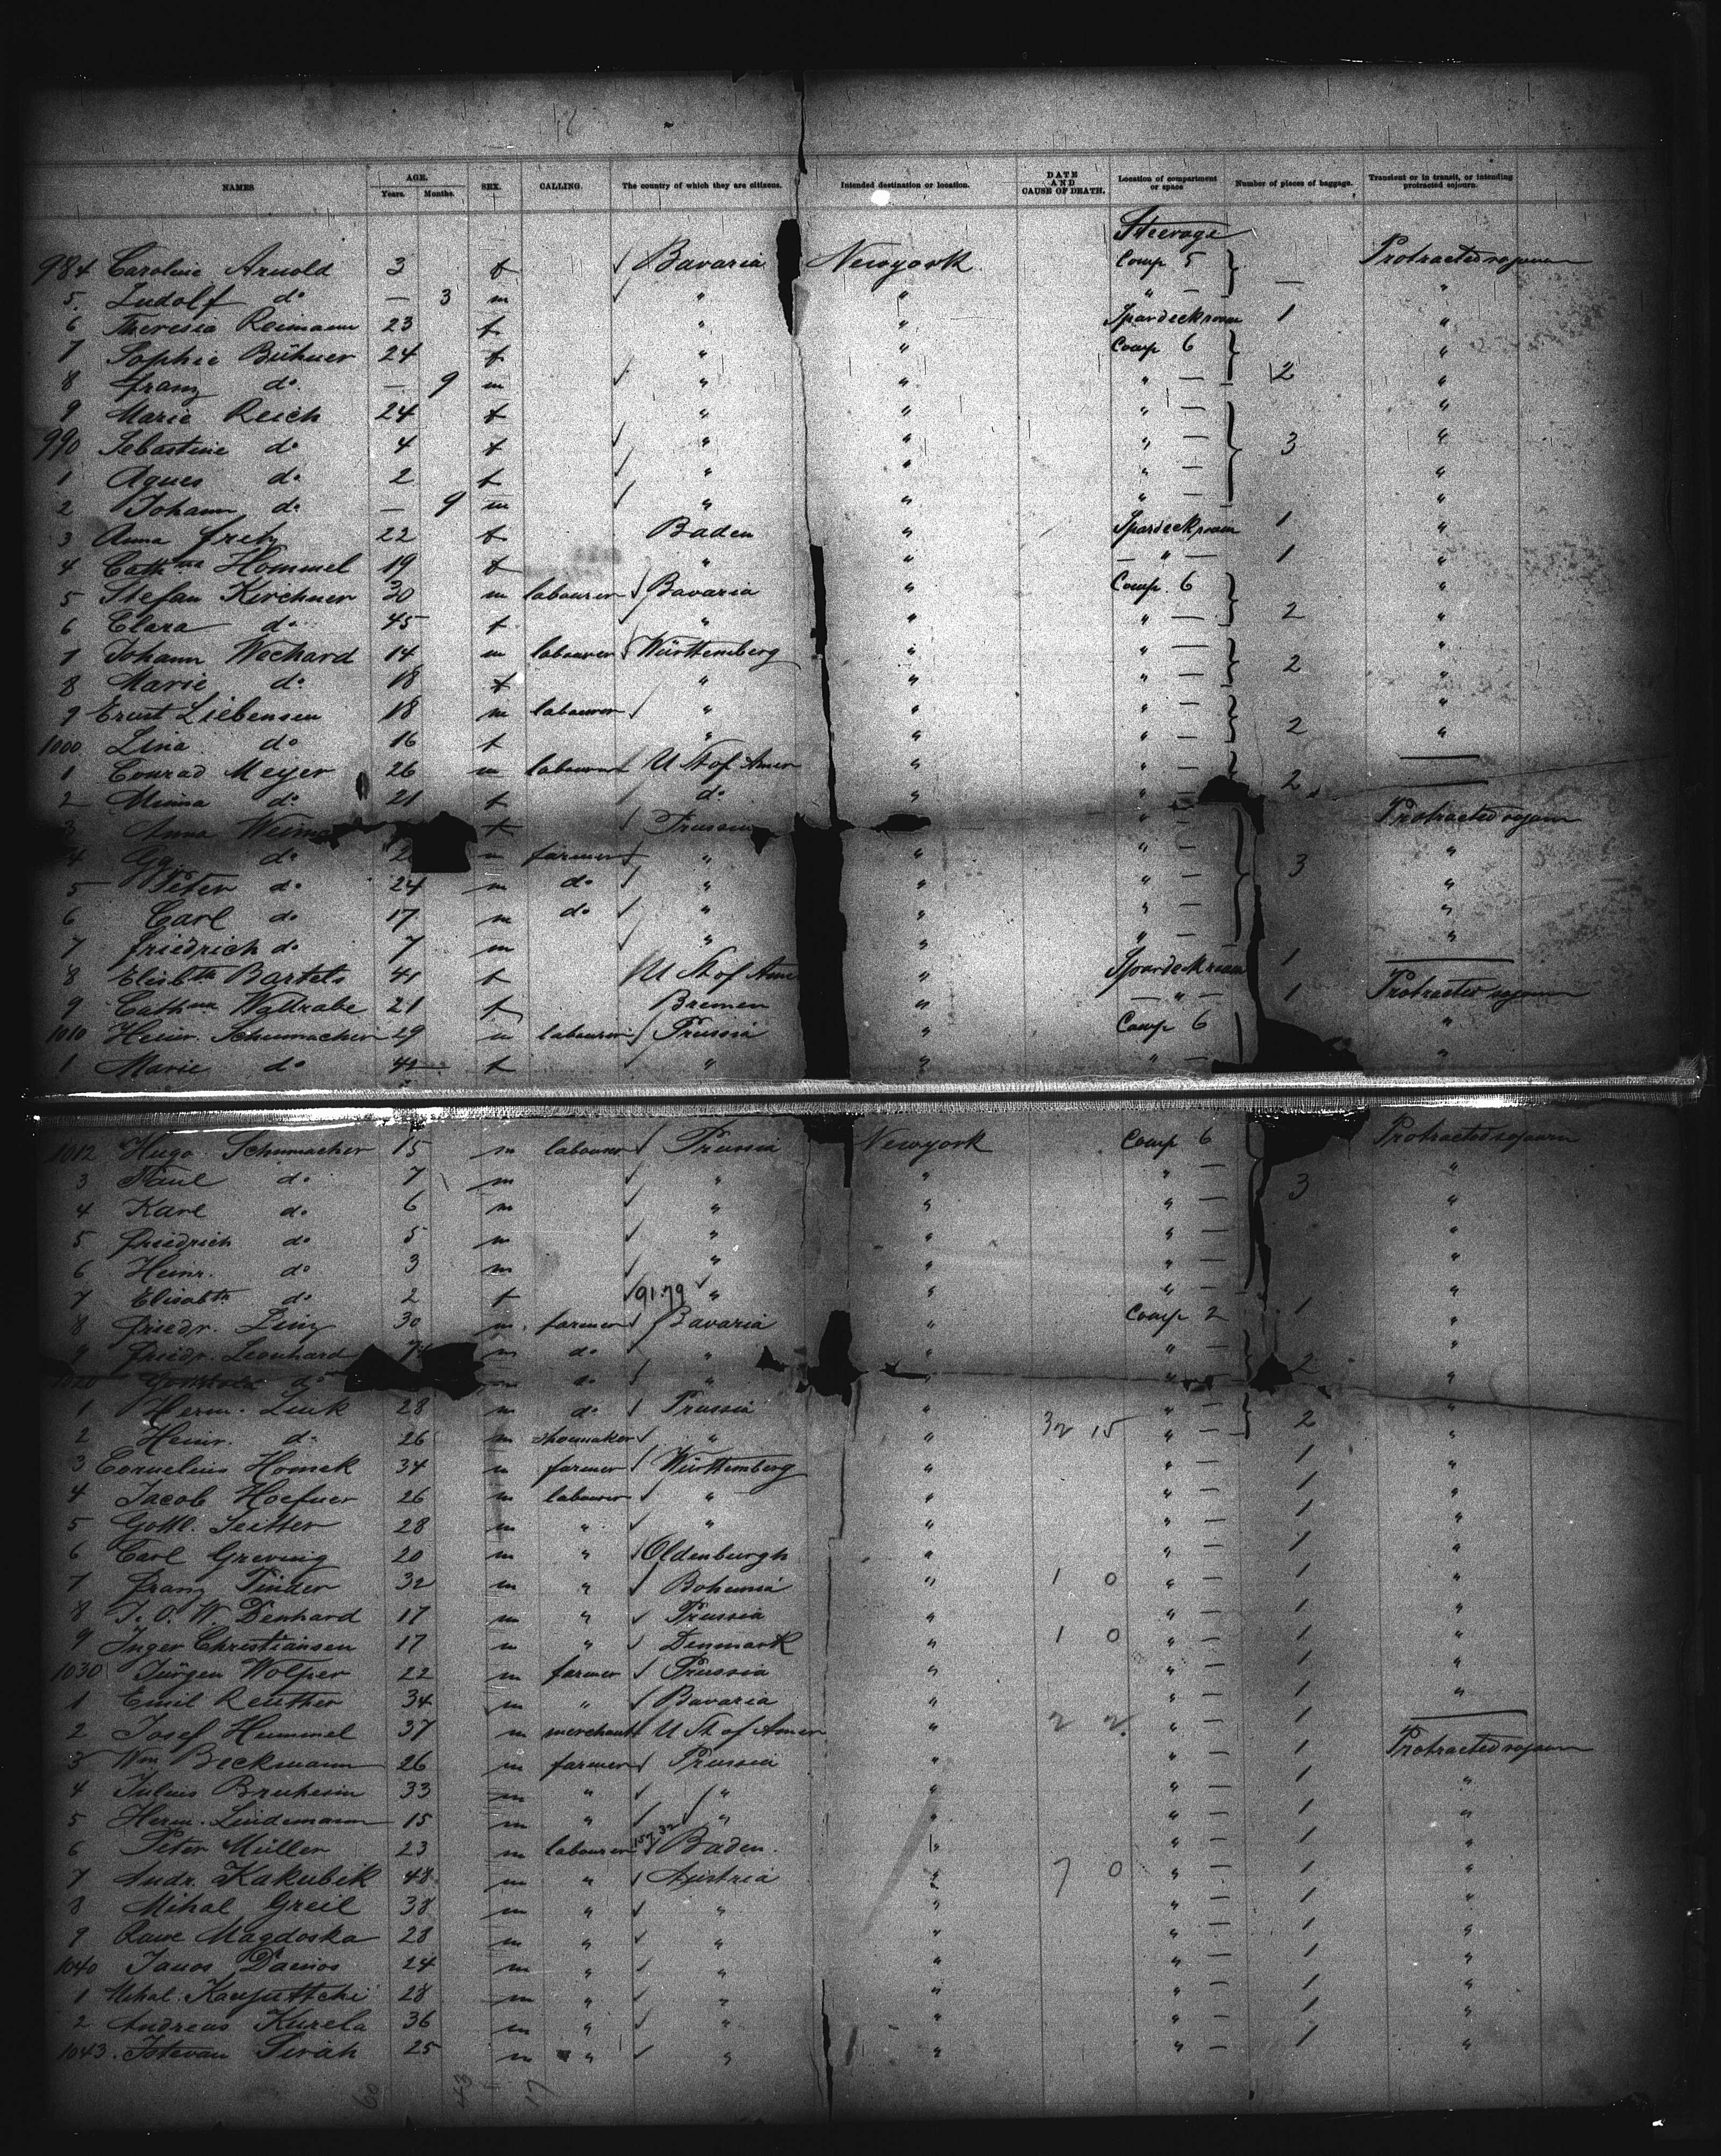 NAMES AGE. Years. Months. SEX. CALLING. The country of which they are citizens. Intended destination or location. DATE AND CAUSE OF DEATH. Location of compartment or space Number of pieces of baggage. Transient or in transit, or intending protracted sojourn.
Steerage
984 Caroline Arnold 3 f Bavaria Newyork Comp 5 Protracted sojourn
5. Ludolf do — 3 m " " " — — "
6 Theresia Reimann 23 f " " Spardeckroom 1 "
7 Sophie Bühner 24 f " " Comp 6 "
8 Franz do. — 9 m " " " — 2 "
9 Marie Reich 24 f " " " — "
990 Sebastine do 4 f " " " — 3 "
1 Agnes do 2 f " " " — "
2 Johann do — 9 m " " " — "
3 Anna Fretz 22 f Baden " Spardeckroom 1 "
4 Cathna Hommel 19 f " " — " — 1 "
5 Stefan Kirchner 30 m labourer Bavaria " Comp. 6 "
6 Clara do 45 f " " " — 2 "
7 Johann Wechard 14 m labourer Württemberg " " — "
8 Marie do 18 f " " " — 2 "
9 Ernst Liebensen 18 m labourer " " " — "
1000 Lina do 16 f " " " — 2 "
1 Conrad Meyer 26 m labourer U St of Amer " " — —
2 Minna do 21 f do " " — 2 —
3 Anna f Prussia " " Protracted sojourn
4 do m farmer " " " — "
5 Peter do 24 m do " " " — 3 "
6 Carl do 17 m do " " " — "
7 Friedrich do 7 m " " " — "
8 Elisbth Bartels 41 f U St of Amer " Spardeckroom 1 —
9 Cathna Wallrabe 21 f Bremen " — " — 1 Protracted sojourn
1010 Heinr. Schumacher 29 m labourer Prussia " Comp 6 "
1 Marie do f " " " — "
1012 Hugo Schumacher 15 m labourer Prussia Newyork Comp 6 Protracted sojourn
3 Paul do 7 m " " " — 3 "
4 Karl do 6 m " " " — "
5 Friedrich do 5 m " " " — "
6 Heinr. do 3 m " " " — "
7 Elisabth do 2 f 91.79 " " " — "
8 Friedr. Linz 30 m. farmer Bavaria " Comp 2 1 "
9 Friedr. Leonhard m do " " " — 2 "
1020 do m do " " " "
1 Herm. Link 28 m do Prussia " " — "
2 Heinr. do 26 m shoemaker " " 32 15 " — 2 "
3 Cornelius Homek 34 m farmer Württemberg " " — 1 "
4 Jacob Hoefner 26 m labourer " " " — 1 "
5 Gottl. Seitter 28 m " " " " — 1 "
6 Carl Greving 20 m " Oldenburgh " " — 1 "
7 Franz Tinder 32 m " Bohemia " 1 0 " — 1 "
8 J. O. W. Denhard 17 m " Prussia " " — 1 "
9 Inger Christiansen 17 m " Denmark " 1 0 " — 1 "
1030 Jürgen Wolper 22 m farmer Prussia " " — 1 "
1 Emil Reuther 34 m " Bavaria " " — 1 "
2 Josef Hummel 37 m merchant U St of Amer " 2 2 " — 1 —
3 Wm Beckmann 26 m farmer Prussia " " — 1 Protracted sojourn
4 Julius Bruhesin 33 m " " " " — 1 "
5 Herm. Lindemann 15 m " " " " — 1 "
6 Peter Müller 23 m labourer Baden. " " — 1 "
7 Andr. Kakubik 48 m " Austria " 7 0 " — 1 "
8 Mihal Greil 38 m " " " " — 1 "
9 Magdoska 28 m " " " " — 1 "
1040 Janos Damos 24 m " " " " — 1 "
1 Mihal 28 m " " " " — 1 "
2 Andreas Kurela 36 m " " " " — 1 "
1043. Istevan Sirah 25 m " " " " — 1 "
60 43 17